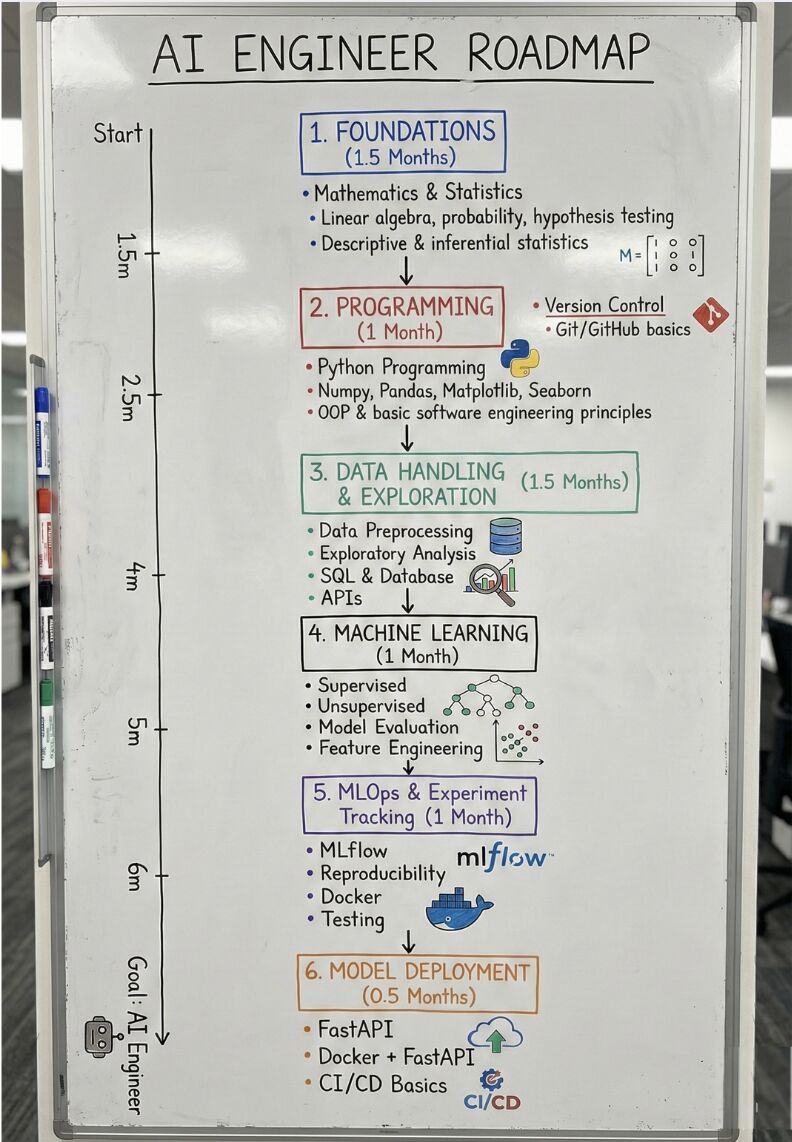 AI ENGINEER ROADMAP
Start
1.5m
2.5m
4m
5m
6m
Goal: AI Engineer
1. FOUNDATIONS
(1.5 Months)
• Mathematics & Statistics
• Linear algebra, probability, hypothesis testing
• Descriptive & inferential statistics
M = [ 1 0 0
1 0 1
1 0 0 ]
2. PROGRAMMING
(1 Month)
• Version Control
• Git/GitHub basics
• Python Programming
• Numpy, Pandas, Matplotlib, Seaborn
• OOP & basic software engineering principles
3. DATA HANDLING
& EXPLORATION (1.5 Months)
• Data Preprocessing
• Exploratory Analysis
• SQL & Database
• APIs
4. MACHINE LEARNING
(1 Month)
• Supervised
• Unsupervised
• Model Evaluation
• Feature Engineering
5. MLOps & Experiment
Tracking (1 Month)
• MLflow
mlflow™
• Reproducibility
• Docker
• Testing
6. MODEL DEPLOYMENT
(0.5 Months)
• FastAPI
• Docker + FastAPI
• CI/CD Basics
CI/CD